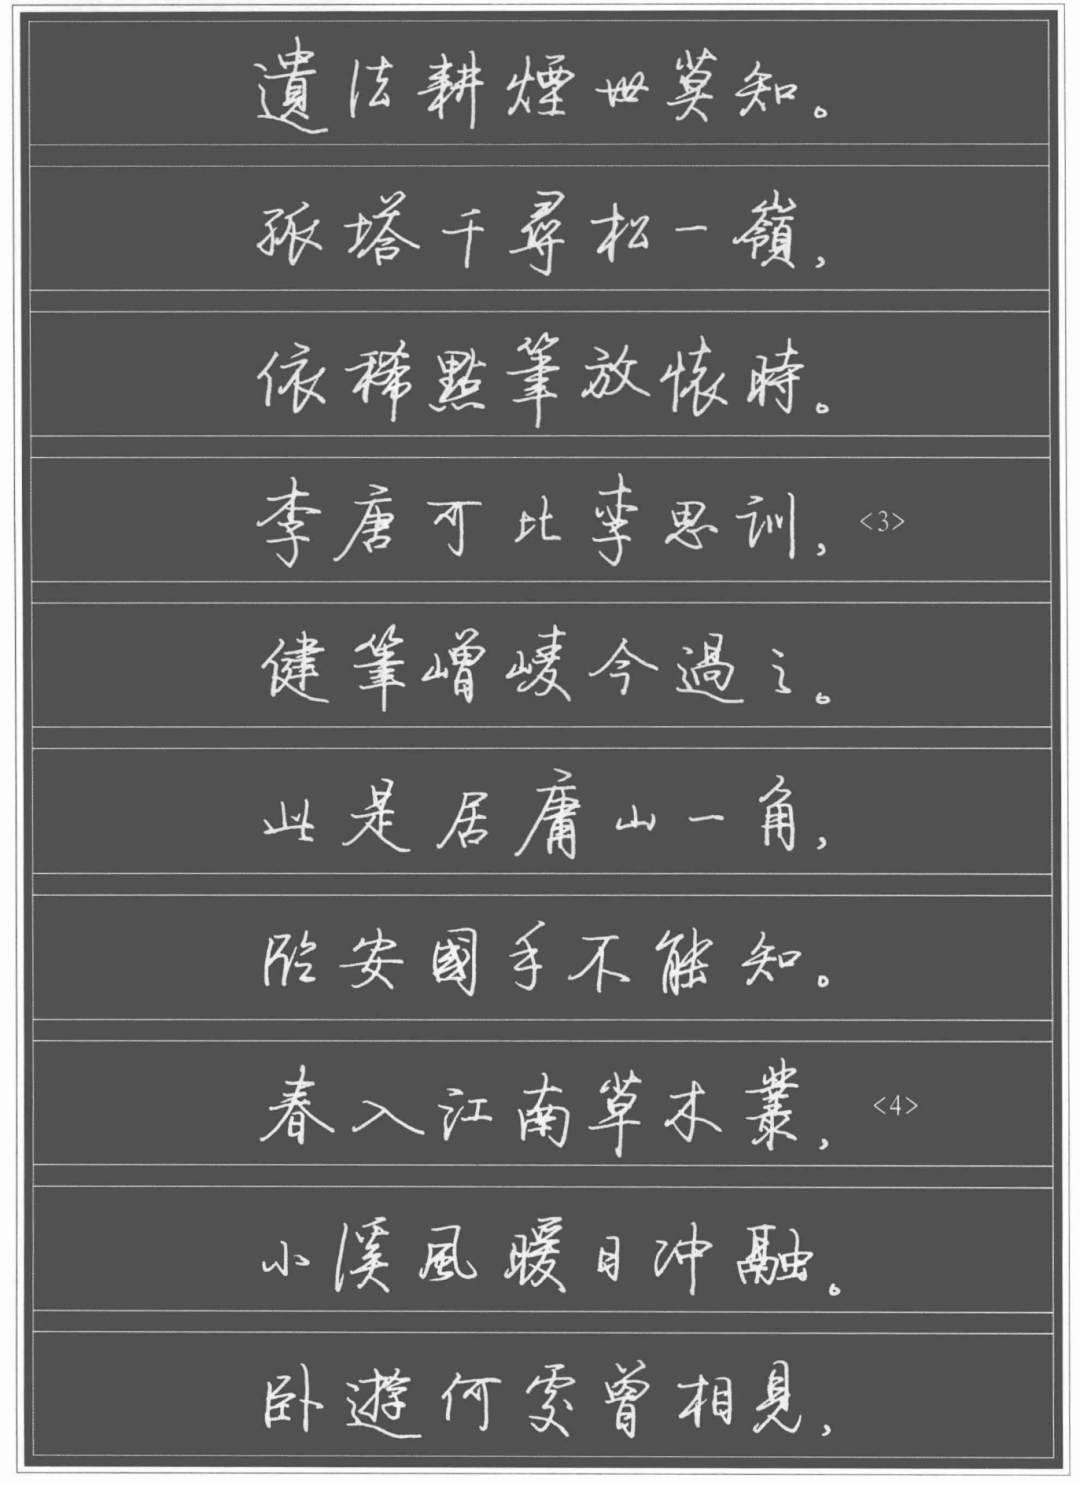 遺法耕煙世莫知。
孤塔千尋松一嶺，
依稀點筆放懷時。
李唐可比李思訓，<3>
健筆嶒崚今過之。
此是居庸山一角，
臨安國手不能知。
春入江南草木叢，<4>
小溪風暖日沖融。
卧遊何處曾相見，